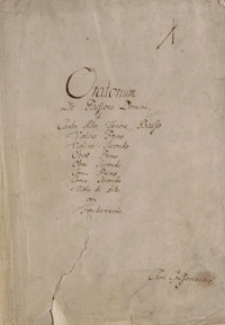 Oratorium
De Passione Domini
Canto Alto Tenore Basso
Violino Primo
Violino Secondo
Oboe Primo
Oboe Secondo
Cornu Primo
Cornu Secondo
Viola di Alto
con